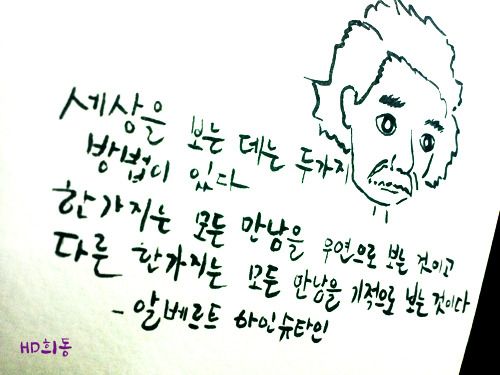 세상을 보는 데는 두가지
방법이 있다
한가지는 모든 만남을 우연으로 보는 것이고
다른 한가지는 모든 만남을 기적으로 보는 것이다
- 알베르트 아인슈타인
HD희동